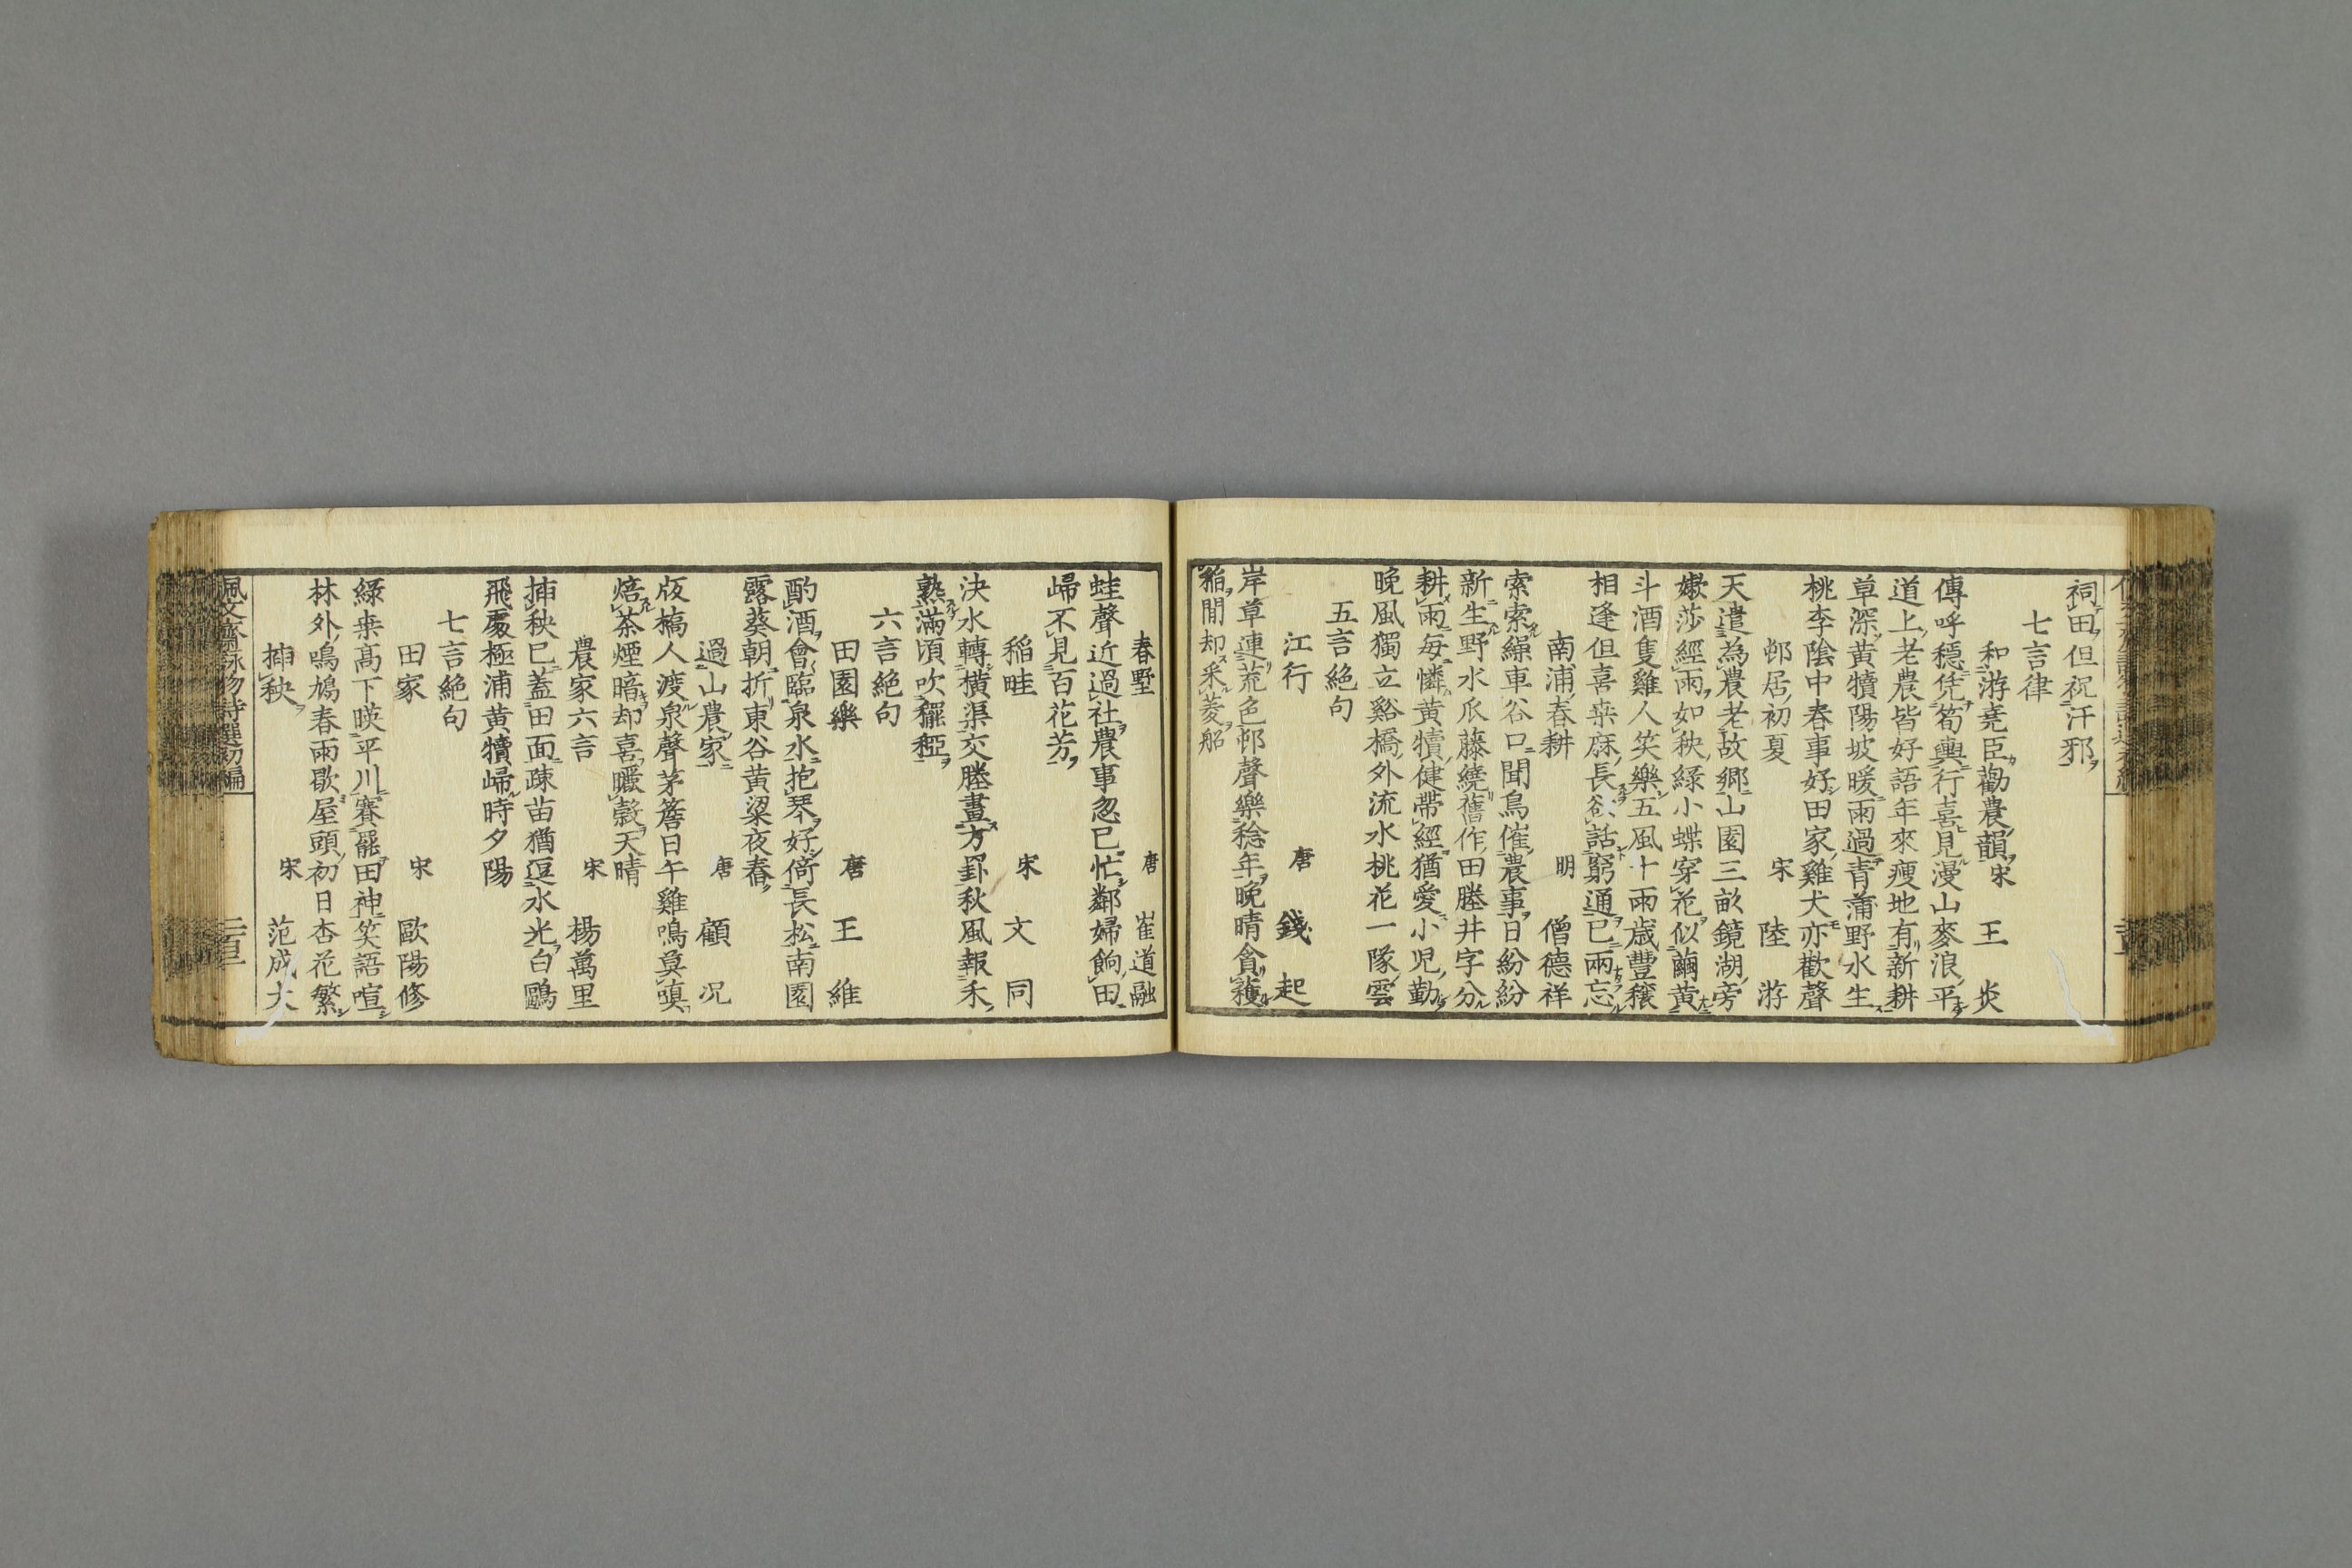 祠田但祝汙邪
七言律
和游堯臣勸農韻 宋 王炎
傳呼穩凭筍輿行喜見漫山麥浪平
道上老農皆好語年來瘦地有新耕
草深黃犢陽坡暖雨過青蒲野水生
桃李陰中春事好田家雞犬亦歡聲
邨居初夏 宋 陸游
天遣為農老故鄉山園三畝鏡湖旁
嫩莎經雨如秧綠小蝶穿花似繭黃
斗酒隻雞人笑樂五風十雨歳豐穰
相逢但喜桒麻長欲話窮通已兩忘
南浦春耕 明 僧德祥
索索繰車谷口聞鳥催農事日紛紛
新生野水瓜藤繞舊作田塍井字分
耕雨每憐黃犢健帶經猶愛小児勤
晚風獨立谿橋外流水桃花一隊雲
五言絶句
江行 唐 錢起
岸草連荒色邨聲樂稔年晚晴貪穫
稲閒却采菱船
春墅 唐 崔道融
蛙聲近過社農事忽已忙鄰婦餉田
歸不見百花芳
稲畦 宋 文同
決水轉橫渠交塍畫方罫秋風報禾
熟滿頃吹䆉稏
六言絶句
田園樂 唐 王維
酌酒會臨泉水抱琴好倚長松南園
露葵朝折東谷黃粱夜舂
過山農家 唐 顧況
版橋人渡泉聲茅簷日午雞鳴莫嗔
焙茶煙暗却喜曬穀天晴
農家六言 宋 楊萬里
揷秧已蓋田面疎苗猶逗水光白鷗
飛處極浦黃犢歸時夕陽
七言絶句
田家 宋 歐陽修
綠桒高下暎平川賽罷田神笑語喧
林外鳴鳩春雨歇屋頭初日杏花繁
揷秧 宋 范成大
佩文齋詠物詩選初編